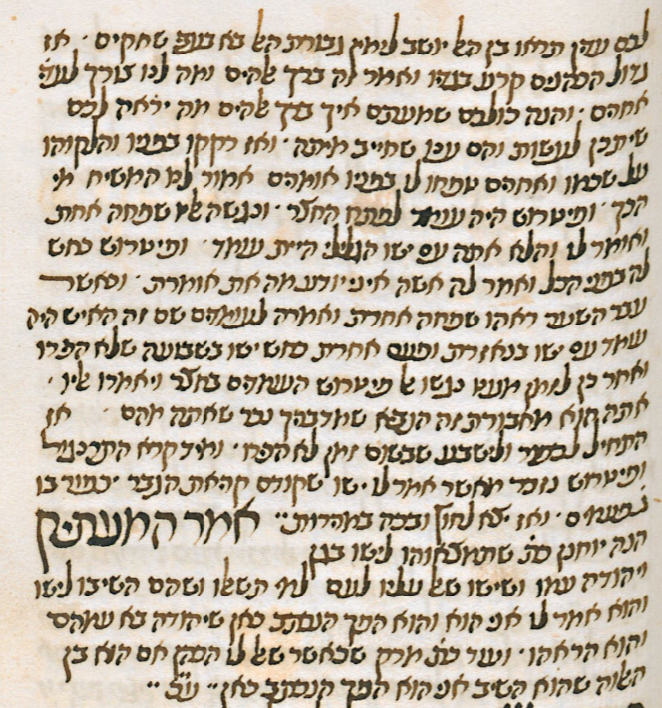 לכם עדין תראו בן האל יושב לימין גבורת האל בא בעבי שחקים · אז
גדול הכהנים קרע בגדיו ואמר זה ברך אלהים ומה לנו צורך לעדי
אחרים · והנה כולכם שמעתם איך ברך אלהים מה יראה לכם
שיתכן לעשות והם ענו שחייב מיתה · ואז רקקו בפניו והלקוהו
על שכמו ואחרים טפחו לו בפניו אומרים אמור לנו המשיח מי
הכך · ופיטרוש היה עומד לפתח החצר · ונגשה אליו שפחה אחת
ואומר לו והלא אתה עם ישו הגלילי היית עומד · ופיטרוש כחש
לה בפני הכל ואמר לה אשה איני יודע מה את אומרת · וכאשר
עבר השער ראהו שפחה אחרת ואמרה לעומדים שם זה האיש היה
עומד עם ישו בנאזרת ופעם אחרת כחש ישו בשבועה שלא הכירו
ואחר כן לזמן מועט נגשו אל פיטרוש העומדים בחצר ויאמרו אליו ·
אתה הוא מחבורת זה הנביא שמדברך נכר שאתה מהם · אז
התחיל לכפור ולישבע שבשום זמן לא הכירו · ומיד קרא התרנגול
ופיטרוש נזכר מאשר אמר לו ישו שקודם קריאת הגבר יכפור בו
ג' פעמים · ואז יצא לחוץ ובכה במרירות ·· אמר המעתיק
הנה יוחנן כת' שתמצאוהו לישו בגן
יהודה עמו ושישו שאל עליו לעם למי תשאלו ושהם השיבו לישו
והוא אמר לו אני הוא והוא הפך הנכתב כאן שיהודה בא עמהם
והוא הראהו · ועוד כת' מרק שכאשר שאל לו הכהן אם הוא בן
האלוה שהוא השיב אני הוא הפך הנכתב כאן ··